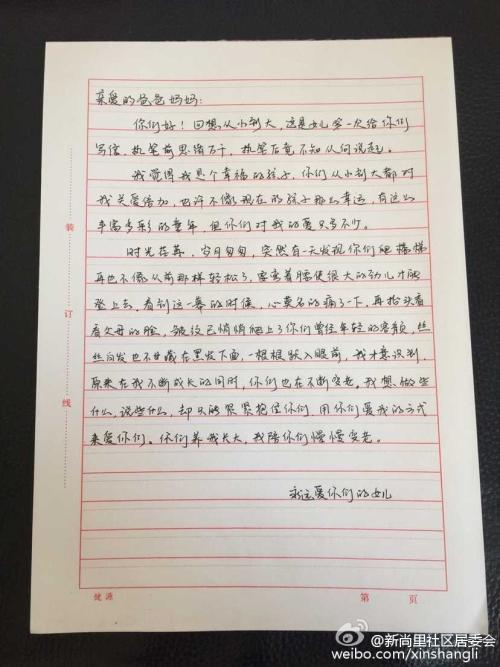 亲爱的爸爸妈妈：
你们好！回想从小到大，这是女儿第一次给你们
写信，执笔前思绪万千，执笔后竟不知从何说起。
我觉得我是个幸福的孩子，你们从小到大都对
我关爱倍加，也许不像现在的孩子那么幸运，有这么
丰富多彩的童年，但你们对我的爱只多不少。
时光荏苒，岁月匆匆，突然有一天发现你们爬楼梯
再也不像从前那样轻松了，要弯着腰使很大的劲儿才能
登上去，看到这一幕的时候，心莫名的痛了一下，再抬头看
看父母的脸，皱纹已悄悄爬上了你们曾经年轻的容颜，丝
丝白发也不甘藏在黑发下面，一根根跃入眼前，我才意识到，
原来在我不断成长的同时，你们也在不断变老。我想做些
什么，说些什么，却只能紧紧抱住你们，用你们爱我的方式
来爱你们。你们养我长大，我陪你们慢慢变老。
永远爱你们的女儿
装
订
线
健源
第 页
@新尚里社区居委会
weibo.com/xinshangli